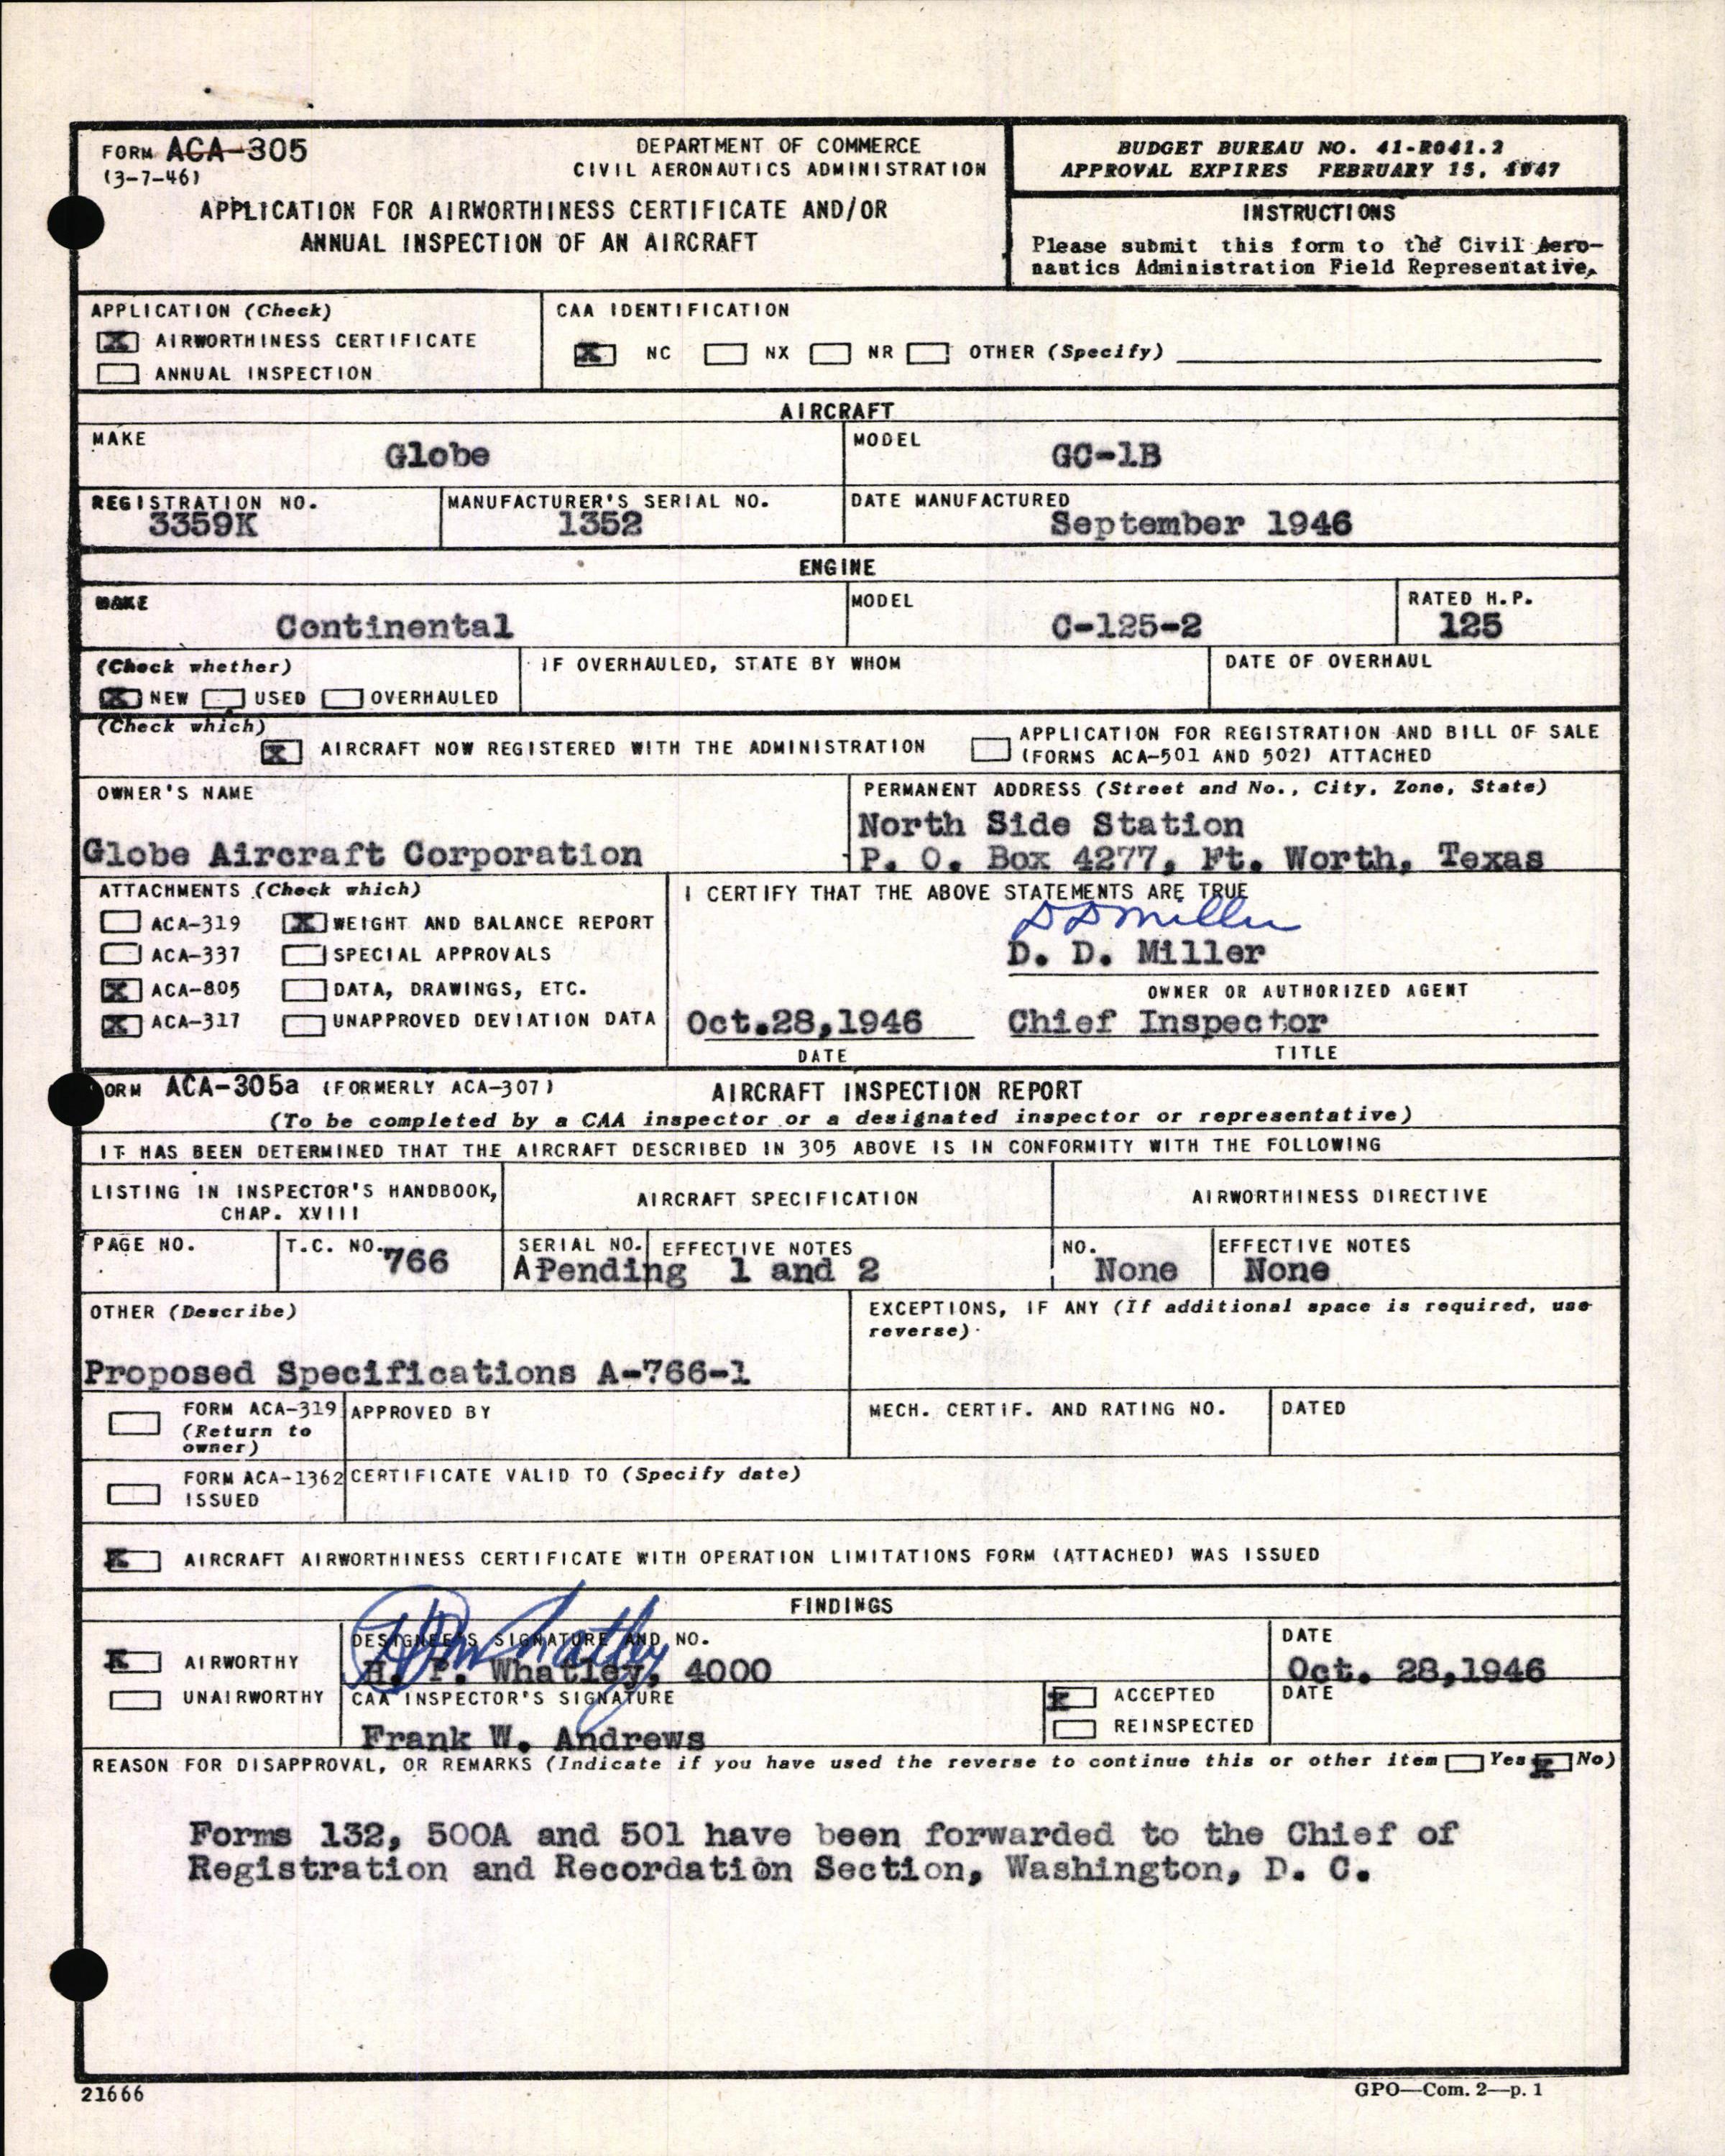 FORM ACA-305
(3-7-46)
DEPARTMENT OF COMMERCE
CIVIL AERONAUTICS ADMINISTRATION
APPLICATION FOR AIRWORTHINESS CERTIFICATE AND/OR
ANNUAL INSPECTION OF AN AIRCRAFT
BUDGET BUREAU NO. 41-R041.2
APPROVAL EXPIRES FEBRUARY 15, 1947
INSTRUCTIONS
Please submit this form to the Civil Aero-
nautics Administration Field Representative.
APPLICATION (Check)
X AIRWORTHINESS CERTIFICATE
ANNUAL INSPECTION
CAA IDENTIFICATION
X NC NX NR OTHER (Specify)
AIRCRAFT
MAKE
Globe
MODEL
GC-1B
REGISTRATION NO.
3359K
MANUFACTURER'S SERIAL NO.
1352
DATE MANUFACTURED
September 1946
ENGINE
MAKE
Continental
MODEL
C-125-2
RATED H.P.
125
(Check whether)
X NEW USED OVERHAULED
IF OVERHAULED, STATE BY WHOM
DATE OF OVERHAUL
(Check which)
X AIRCRAFT NOW REGISTERED WITH THE ADMINISTRATION
APPLICATION FOR REGISTRATION AND BILL OF SALE
(FORMS ACA-501 AND 502) ATTACHED
OWNER'S NAME
Globe Aircraft Corporation
PERMANENT ADDRESS (Street and No., City, Zone, State)
North Side Station
P. O. Box 4277, Ft. Worth, Texas
ATTACHMENTS (Check which)
ACA-319 X WEIGHT AND BALANCE REPORT
ACA-337 SPECIAL APPROVALS
X ACA-805 DATA, DRAWINGS, ETC.
X ACA-317 UNAPPROVED DEVIATION DATA
I CERTIFY THAT THE ABOVE STATEMENTS ARE TRUE
D D Miller
D. D. Miller
OWNER OR AUTHORIZED AGENT
Oct.28,1946 Chief Inspector
DATE TITLE
FORM ACA-305a (FORMERLY ACA-307) AIRCRAFT INSPECTION REPORT
(To be completed by a CAA inspector or a designated inspector or representative)
IT HAS BEEN DETERMINED THAT THE AIRCRAFT DESCRIBED IN 305 ABOVE IS IN CONFORMITY WITH THE FOLLOWING
LISTING IN INSPECTOR'S HANDBOOK,
CHAP. XVIII
AIRCRAFT SPECIFICATION
AIRWORTHINESS DIRECTIVE
PAGE NO.
T.C. NO. 766
SERIAL NO.
A Pending
EFFECTIVE NOTES
1 and 2
NO.
None
EFFECTIVE NOTES
None
OTHER (Describe)
Proposed Specifications A-766-1
EXCEPTIONS, IF ANY (If additional space is required, use
reverse)
FORM ACA-319
(Return to
owner)
APPROVED BY
MECH. CERTIF. AND RATING NO.
DATED
FORM ACA-1362
ISSUED
CERTIFICATE VALID TO (Specify date)
X AIRCRAFT AIRWORTHINESS CERTIFICATE WITH OPERATION LIMITATIONS FORM (ATTACHED) WAS ISSUED
FINDINGS
X AIRWORTHY
UNAIRWORTHY
DESIGNEE'S SIGNATURE AND NO.
H. P. Whatley, 4000
DATE
Oct. 28,1946
CAA INSPECTOR'S SIGNATURE
Frank W. Andrews
X ACCEPTED
REINSPECTED
DATE
REASON FOR DISAPPROVAL, OR REMARKS (Indicate if you have used the reverse to continue this or other item Yes X No)
Forms 132, 500A and 501 have been forwarded to the Chief of
Registration and Recordation Section, Washington, D. C.
21666
GPO—Com. 2—p. 1